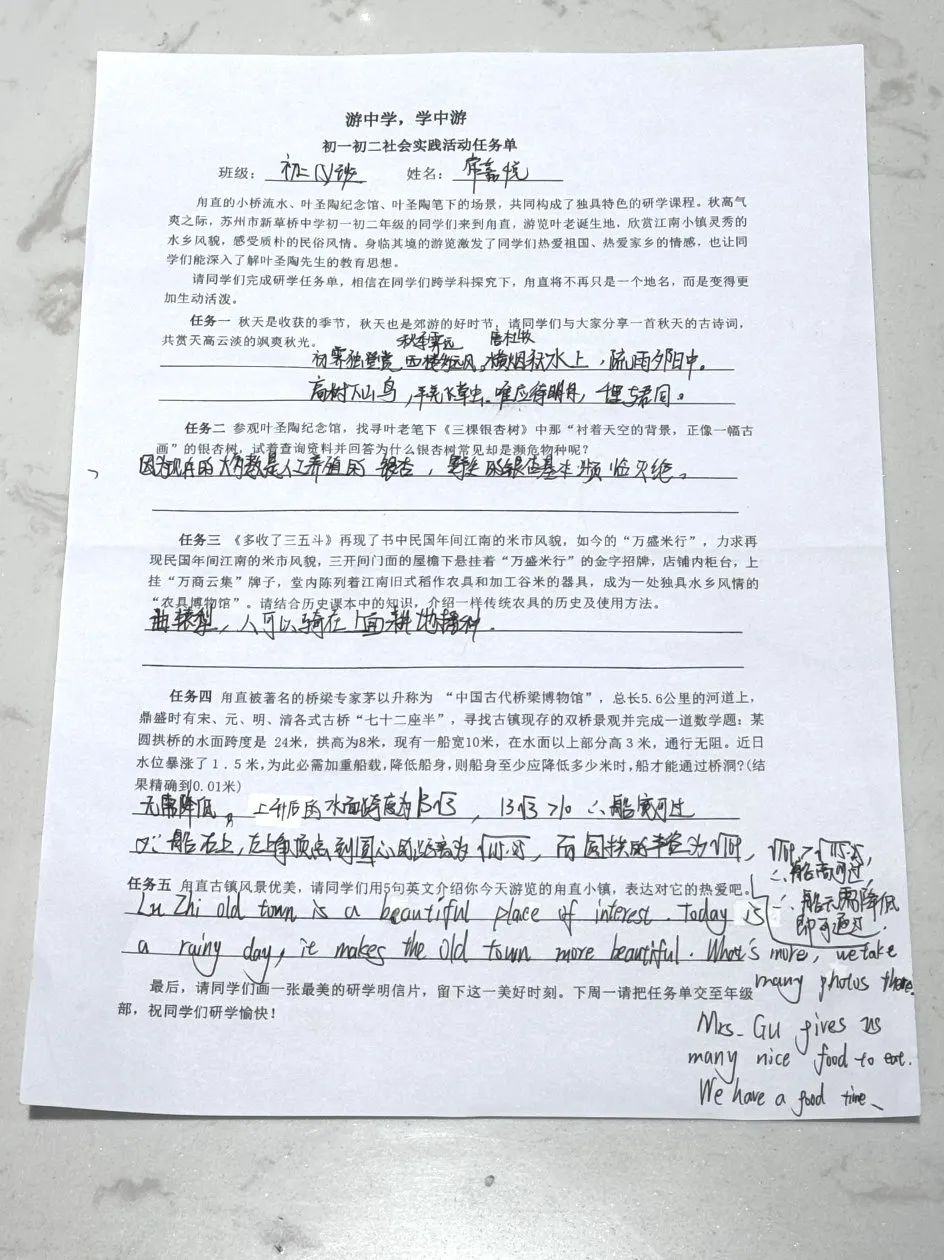 游中学，学中游
初一初二社会实践活动任务单
班级： 初二 班 姓名：
甪直的小桥流水、叶圣陶纪念馆、叶圣陶笔下的场景，共同构成了独具特色的研学课程。秋高气
爽之际，苏州市新草桥中学初一初二年级的同学们来到甪直，游览叶老诞生地，欣赏江南小镇灵秀的
水乡风貌，感受质朴的民俗风情。身临其境的游览激发了同学们热爱祖国、热爱家乡的情感，也让同
学们能深入了解叶圣陶先生的教育思想。
请同学们完成研学任务单，相信在同学们跨学科探究下，甪直将不再只是一个地名，而是变得更
加生动活泼。
任务一 秋天是收获的季节，秋天也是郊游的好时节，请同学们与大家分享一首秋天的古诗词，
共赏天高云淡的飒爽秋光。 秋 霁 唐杜牧
初霁独登赏，西楼多远风。横烟秋水上，疏雨夕日中。
高树下山鸟，平芜飞草虫。唯应待明月，千里与君同。
任务二 参观叶圣陶纪念馆，找寻叶老笔下《三棵银杏树》中那“衬着天空的背景，正像一幅古
画”的银杏树，试着查询资料并回答为什么银杏树常见却是濒危物种呢？
因为现在的大多数是人工养殖的银杏，野生的银杏基本濒临灭绝。
任务三 《多收了三五斗》再现了书中民国年间江南的米市风貌，如今的“万盛米行”，力求再
现民国年间江南的米市风貌，三开间门面的屋檐下悬挂着“万盛米行”的金字招牌，店铺内柜台，上
挂“万商云集”牌子，堂内陈列着江南旧式稻作农具和加工谷米的器具，成为一处独具水乡风情的
“农具博物馆”。请结合历史课本中的知识，介绍一样传统农具的历史及使用方法。
曲辕犁，人可以骑在上面耕地播种.
任务四 甪直被著名的桥梁专家茅以升称为 “中国古代桥梁博物馆”，总长5.6公里的河道上，
鼎盛时有宋、元、明、清各式古桥“七十二座半”，寻找古镇现存的双桥景观并完成一道数学题：某
圆拱桥的水面跨度是 24米，拱高为8米，现有一船宽10米，在水面以上部分高 3 米，通行无阻。近日
水位暴涨了 1．5 米,为此必需加重船载，降低船身,则船身至少应降低多少米时，船才能通过桥洞?(结
果精确到0.01米)
无需降低， 上升后的水面跨度为13√3， 13√3 >10 ∴船宽可过
又∵船右上，左上角顶点到圆心的距离为 ，而圆拱的半径为√169，
∴船高可过，
∴船无需降低
即可通过.
任务五 甪直古镇风景优美，请同学们用5句英文介绍你今天游览的甪直小镇，表达对它的热爱吧。
Lu Zhi old town is a beautiful place of interest. Today is
a rainy day, it makes the old town more beautiful. What's more, we take
many photos there.
Mrs. Gu gives us
many nice food to eat.
We have a good time.
最后，请同学们画一张最美的研学明信片，留下这一美好时刻。下周一请把任务单交至年级
部，祝同学们研学愉快！